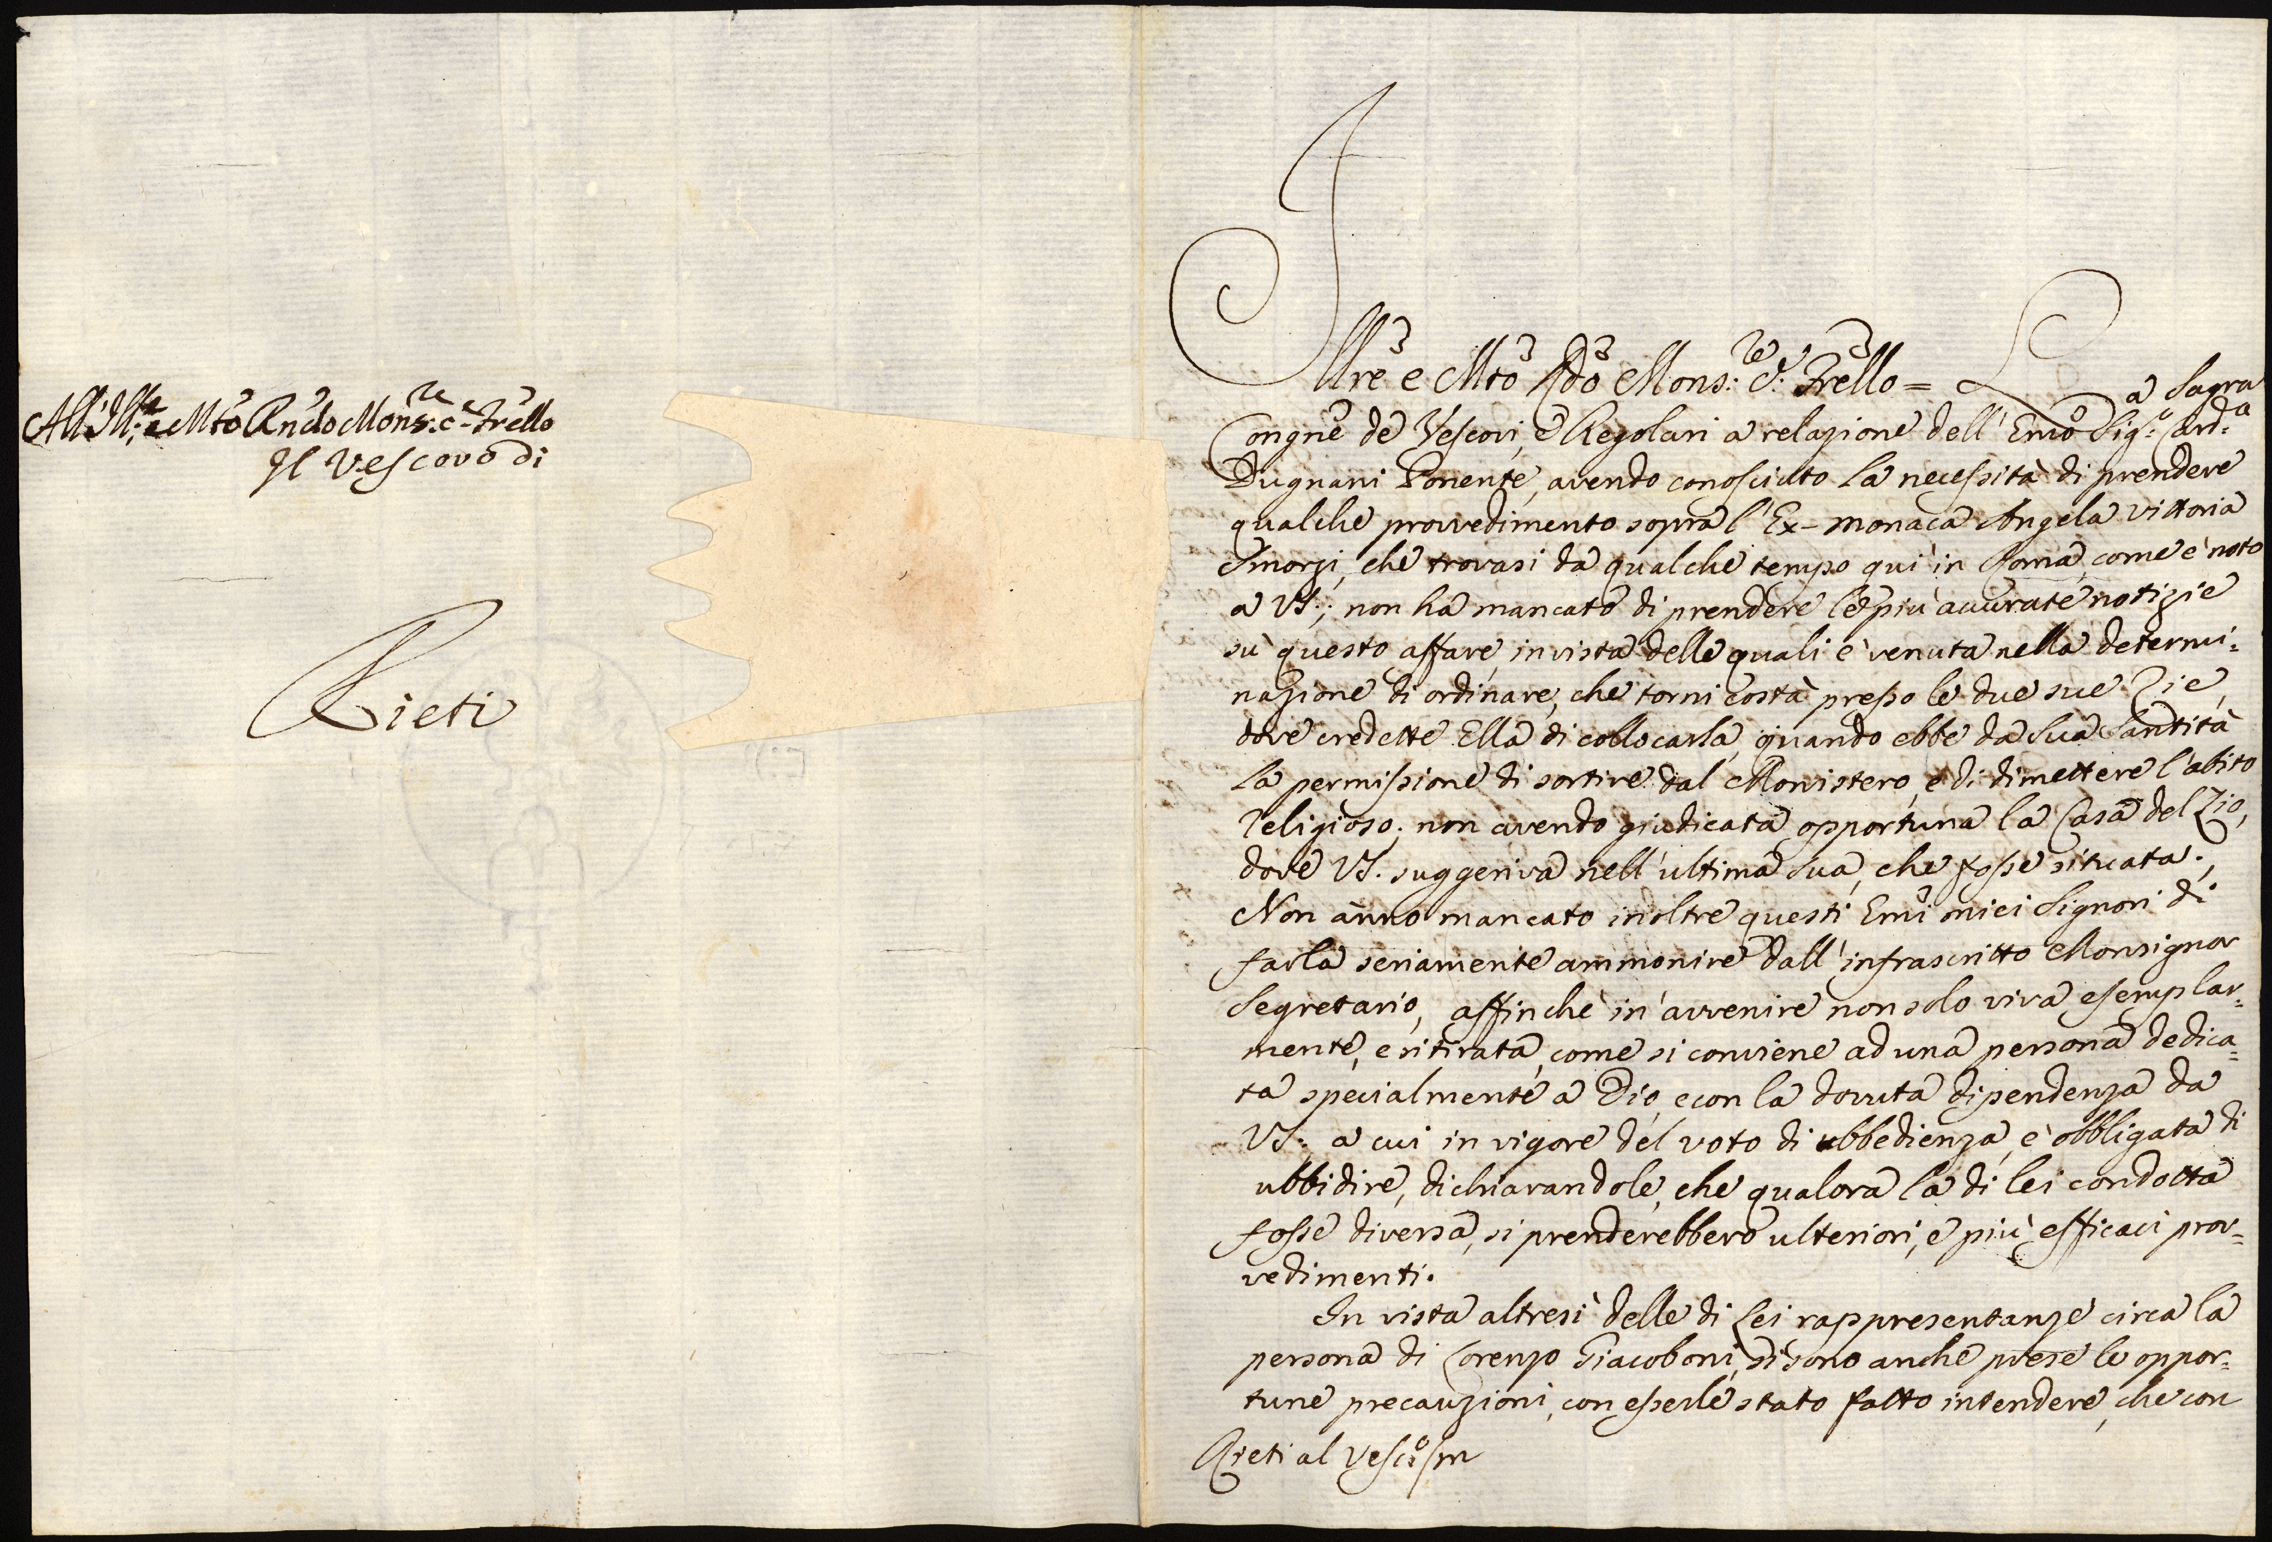 All'Ill:re e Mto Rndo Mons:re c.e Frello
Il Vescovo di
Rieti
Illre e Mto Rdo Mons:re c.e Frello = La Sagra
Congne de Vescovi, e Regolari a relazione dell'Emo Sig:r Card:
Dugnani Ponente, avendo conosciuto la necessità di prendere
qualche provvedimento sopra l'Ex-monaca Angela Vittoria
Smorzi, che trovasi da qualche tempo quì in Roma, come è noto
a VS:, non ha mancato di prendere le più accurate notizie
sù questo affare, in vista delle quali è venuta nella determi=
nazione di ordinare, che torni costà presso le due sue Zie,
dove credette Ella di collocarla, quando ebbe da Sua Santità
la permissione di sortire dal Monistero, e di dimettere l'abito
Religioso; non avendo giudicata opportuna la Casa del Zio,
dove VS. suggeriva nell'ultima Sua, che fosse situata.
Non ànno mancato inoltre questi Emi miei Signori di
farla seriamente ammonire dall'infrascritto Monsignor
Segretario, affinchè in avvenire non solo viva esemplar=
mente, e ritirata, come si conviene ad una persona dedica=
ta specialmente a Dio, e con la dovuta dipendenza da
VS:, a cui in vigore del voto di ubbedienza, è obbligata di
ubbidire, dichiarandole, che qualora la di lei condotta
fosse diversa, si prenderebbero ulteriori, e più efficaci prov=
vedimenti.
In vista altresì delle di Lei rappresentanze circa la
persona di Lorenzo Giacoboni, si sono anche prese le oppor=
tune precauzioni, con esserle stato fatto intendere, che con
Rieti al Vesco